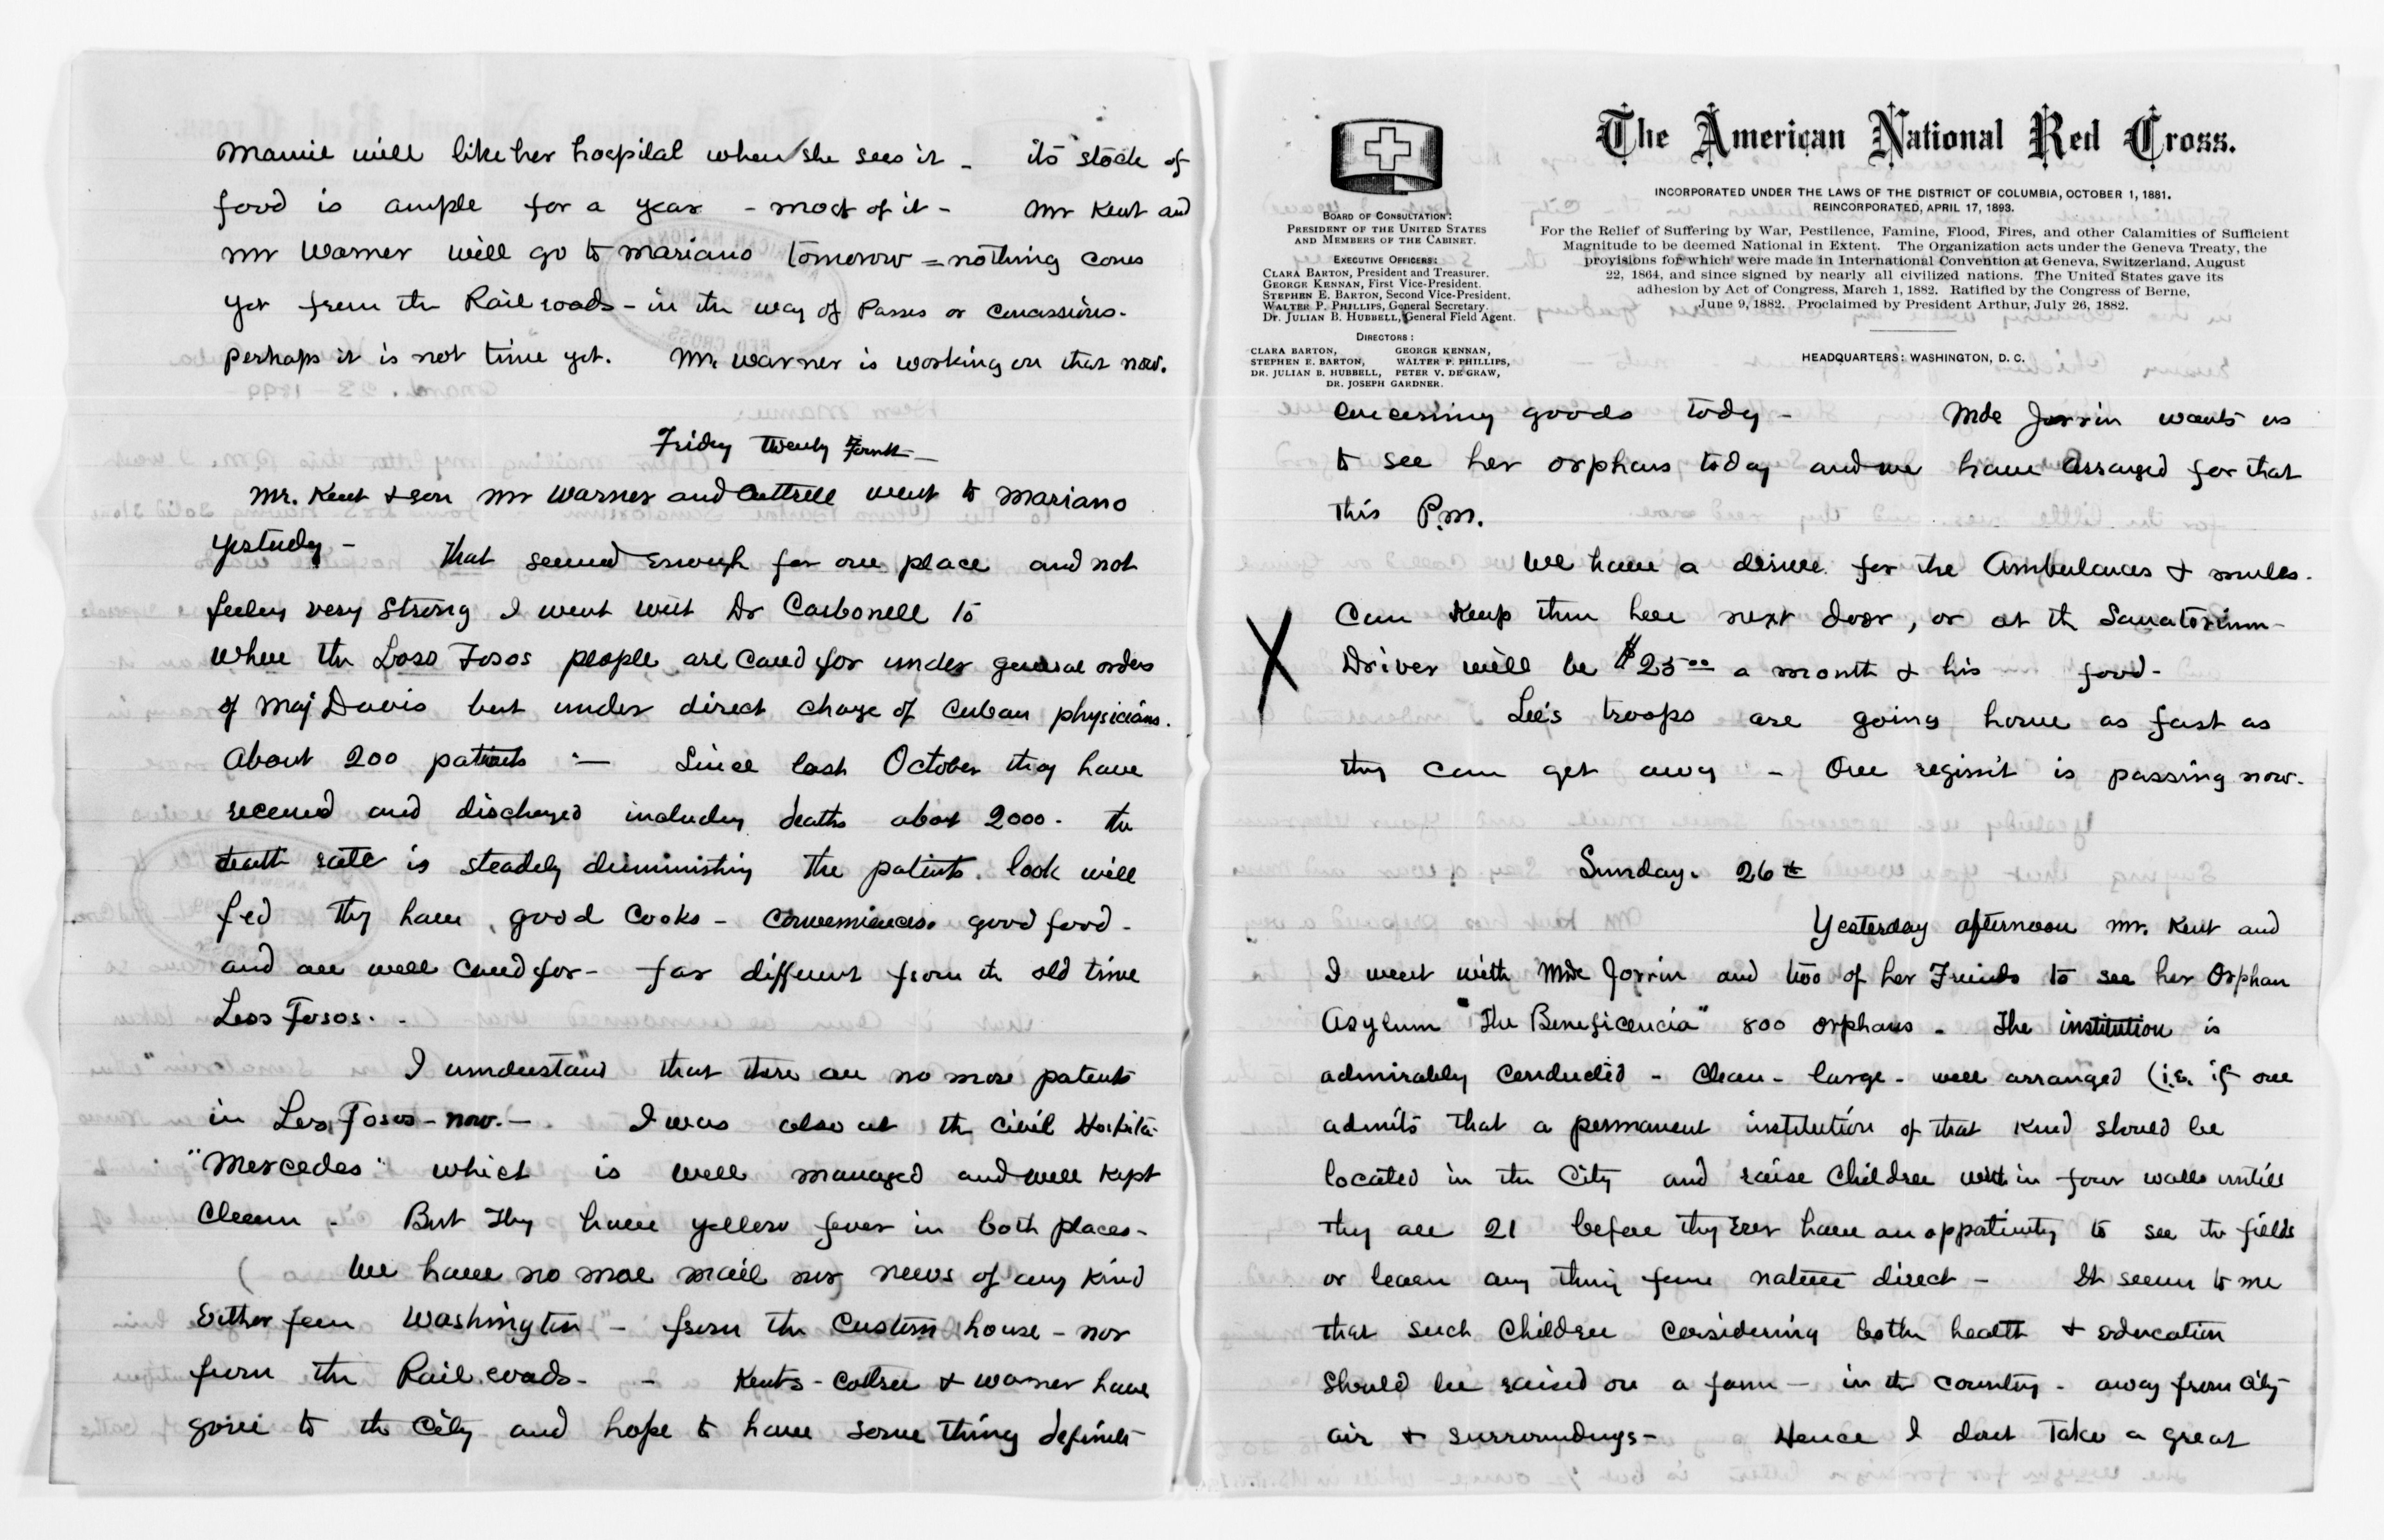 Mamie will like her hospital when she sees it - its stock of
food is ample for a year - most of it - Mr Kent and
Mr Warner will go to Mariano tomorrow = nothing comes
yet from the Rail roads - in the way of Passes or Concessions.
Perhaps it is not time yet. Mr. Warner is working on that now.
Friday twenty Fourth -
Mr. Kent & son Mr Warner and Cottrell went to Mariano
yestudy - that seemed enough for one place and not
feeling very strong I went with Dr Carbonell to
where the Loss Fosos people are cared for under general orders
of Maj Davis but under direct charge of Cuban physicians.
About 200 patients :— Since last October they have
received and discharged including deaths about 2000. The
death rate is steadily diminishing The patients look well
fed They have good Cooks - Conveniences. good food -
and are well cared for - far different from the old time
Loss Fosos. -
I understand that there are no more patients
in Los Fosos - now. - I was also at the Civil Hospital
"Mercedes" which is well managed and well kept
Clean - But They have yellow fever in both places -
( We have no more mail nor news of any kind
Either from Washington - from the Custom house - nor
from the Rail roads - - Kents - Cottrell & Warner have
gone to the City and hope to have some thing definite
The American National Red Cross.
INCORPORATED UNDER THE LAWS OF THE DISTRICT OF COLUMBIA, OCTOBER 1, 1881.
REINCORPORATED, APRIL 17, 1893.
For the Relief of Suffering by War, Pestilence, Famine, Flood, Fires, and other Calamities of Sufficient
Magnitude to be deemed National in Extent. The Organization acts under the Geneva Treaty, the
provisions for which were made in International Convention at Geneva, Switzerland, August
22, 1864, and since signed by nearly all civilized nations. The United States gave its
adhesion by Act of Congress, March 1, 1882. Ratified by the Congress of Berne,
June 9, 1882. Proclaimed by President Arthur, July 26, 1882.
HEADQUARTERS: WASHINGTON, D. C.
BOARD OF CONSULTATION:
PRESIDENT OF THE UNITED STATES
AND MEMBERS OF THE CABINET.
EXECUTIVE OFFICERS:
CLARA BARTON, President and Treasurer.
GEORGE KENNAN, First Vice-President.
STEPHEN E. BARTON, Second Vice-President.
WALTER P. PHILLIPS, General Secretary.
DR. JULIAN B. HUBBELL, General Field Agent.
DIRECTORS:
CLARA BARTON, GEORGE KENNAN,
STEPHEN E. BARTON, WALTER P. PHILLIPS,
DR. JULIAN B. HUBBELL, PETER V. DE GRAW,
DR. JOSEPH GARDNER.
concerning goods today - Mde Jorrin wants us
to see her orphans today and we have arranged for that
this P.M.
We have a driver for the Ambulances & mules.
Can keep them here next door, or at the Sanatorium -
X Driver will be $25.00 a month & his food -
Lee's troops are going home as fast as
they can get away - One regim't is passing now.
Sunday. 26th
Yesterday afternoon Mr. Kent and
I went with Mde Jorrin and two of her Friends to see her Orphan
Asylum "The Beneficencia" 800 orphans - The institution is
admirably conducted - Clean - large - well arranged (i.e. if one
admits that a permanent institution of that kind should be
located in the City and raise Children with in four walls untill
they are 21 before they Ever have an oppotunity to see the fields
or learn any thing from nature direct - It seems to me
that such Children considering both health & education
should be raised on a farm - in the country - away from city
air & surroundings - Hence I dont Take a great